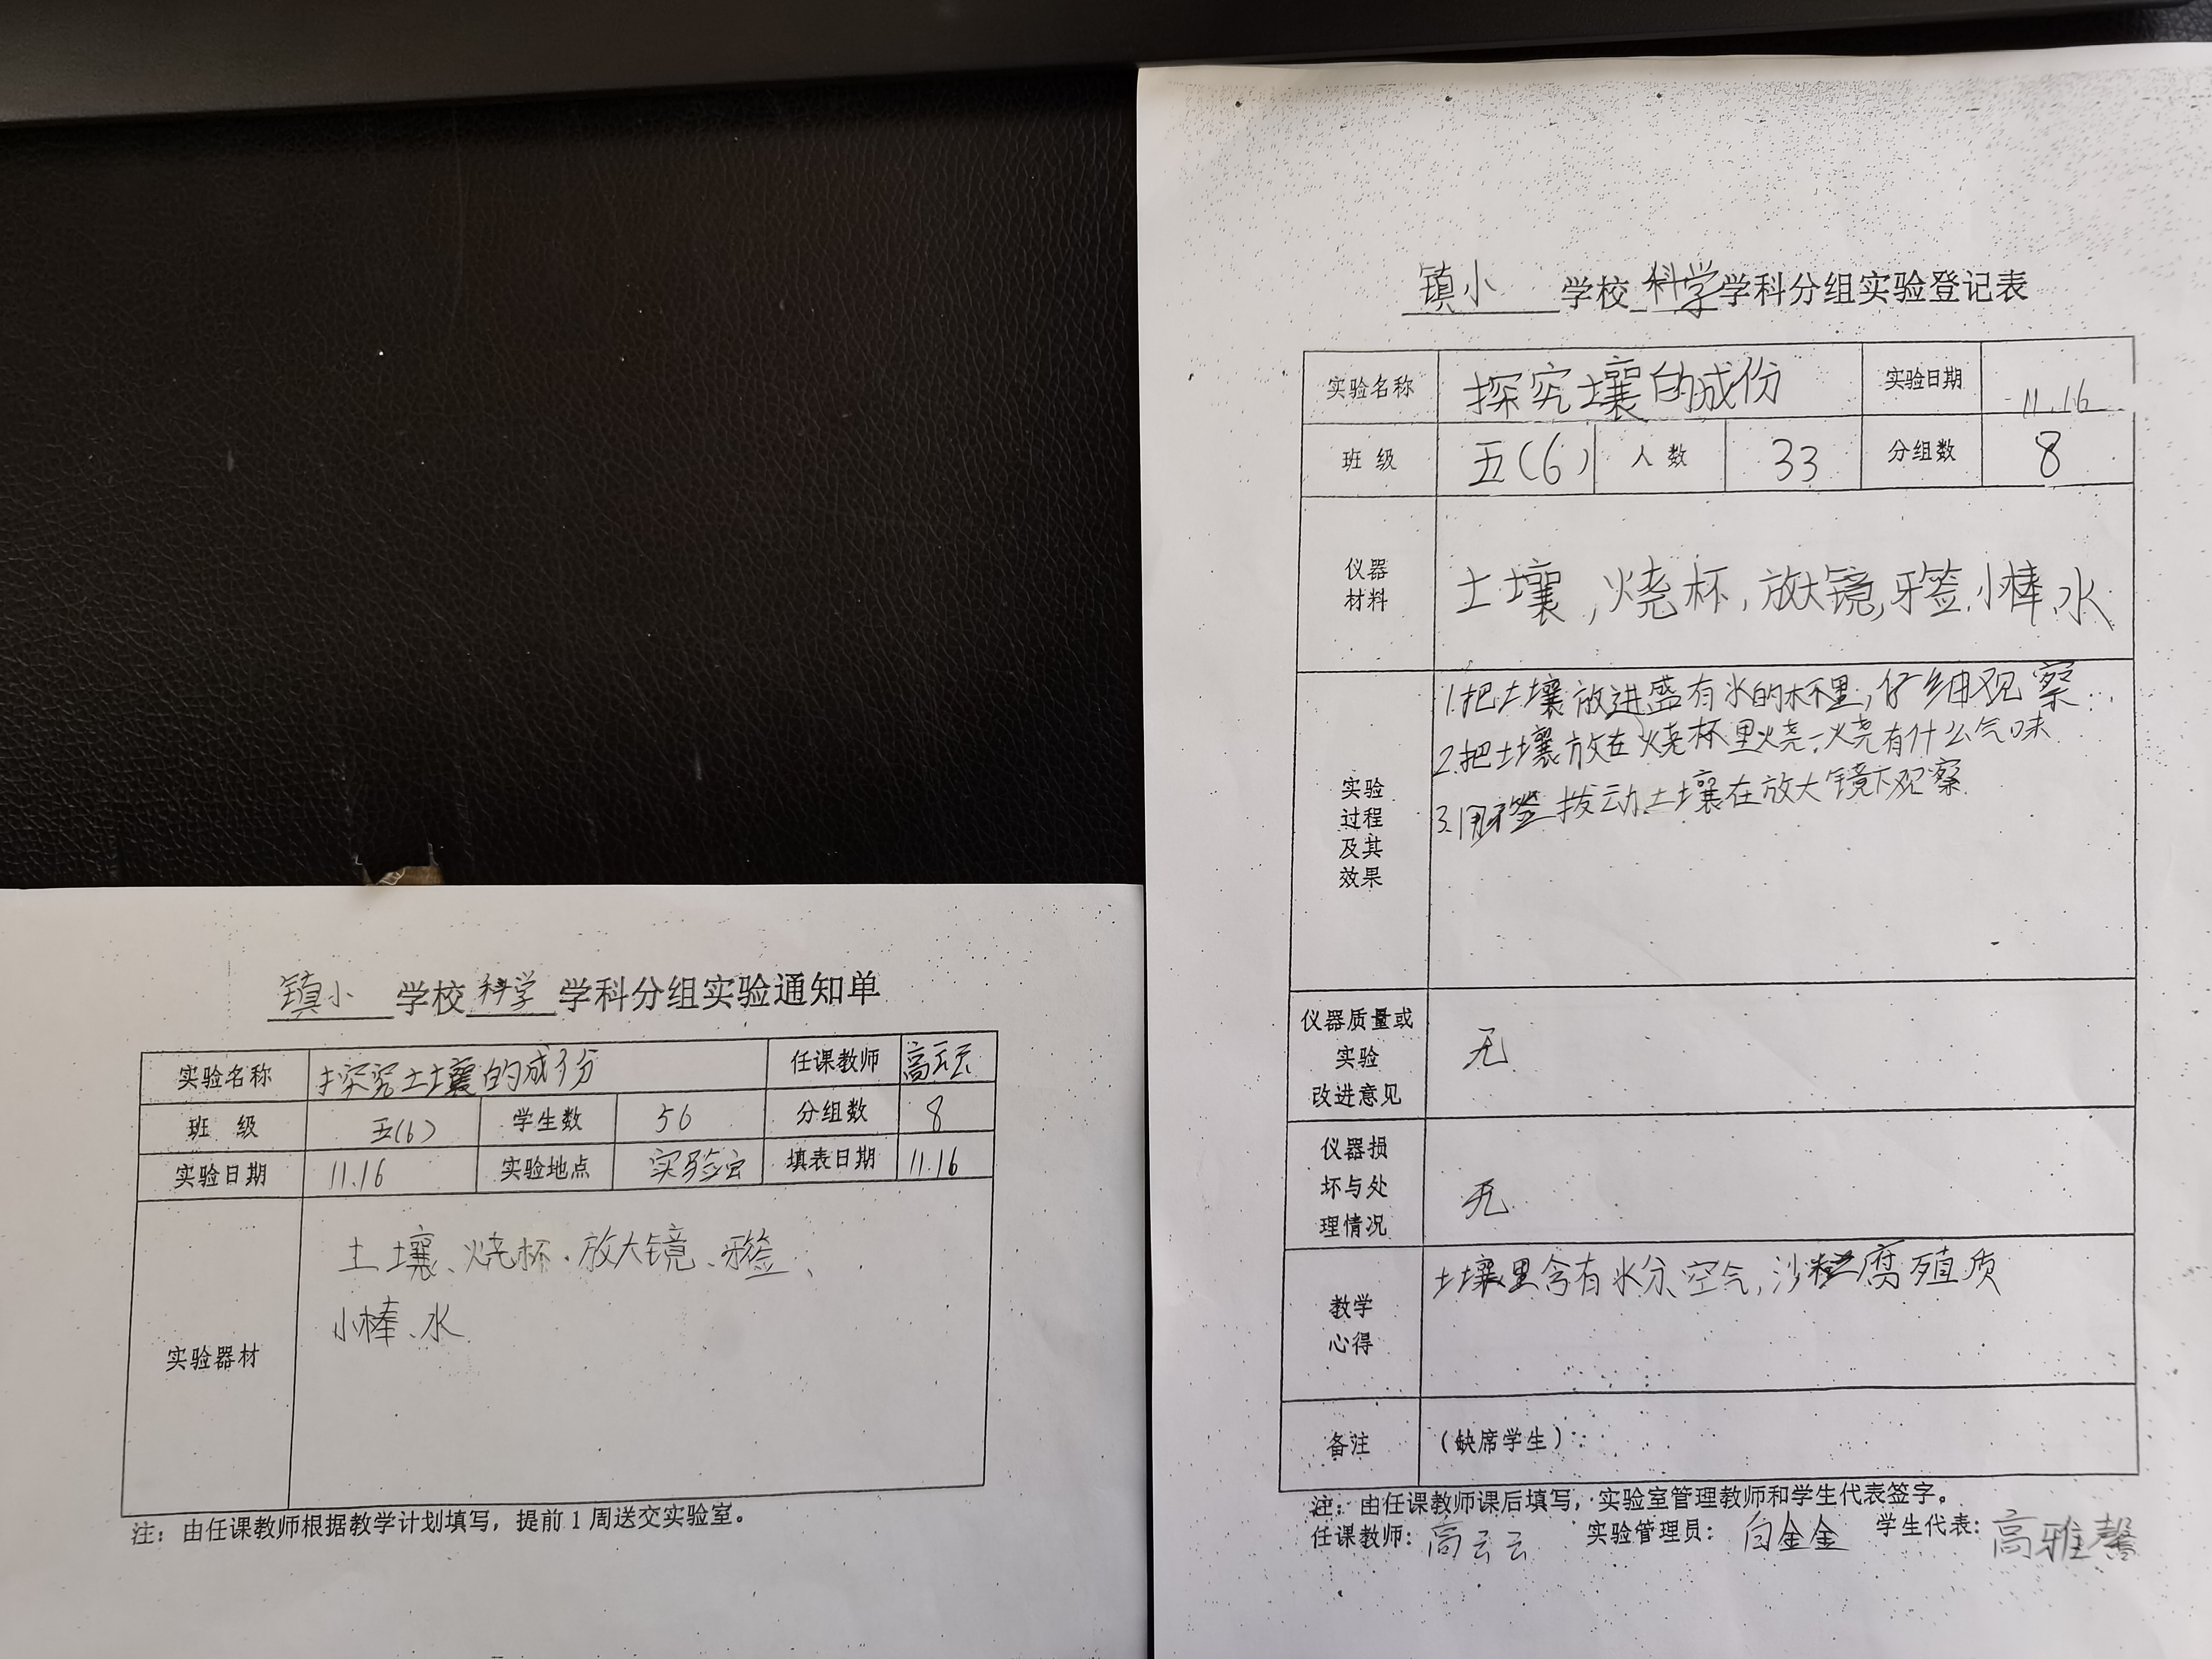 镇小 学校 科学 学科分组实验通知单
实验名称 探究土壤的成份 任课教师 高云云
班 级 五(6) 学生数 56 分组数 8
实验日期 11.16 实验地点 实验室 填表日期 11.16
实验器材
土壤、烧杯、放大镜、牙签、
小棒、水
注：由任课教师根据教学计划填写，提前1周送交实验室。
镇小 学校 科学 学科分组实验登记表
实验名称 探究土壤的成份 实验日期 11.16
班 级 五(6) 人 数 33 分组数 8
仪器
材料
土壤,烧杯,放大镜,牙签,小棒、水
实验
过程
及其
效果
1.把土壤放进盛有水的杯里,仔细观察.
2.把土壤放在烧杯里烧一烧有什么气味
3.用牙签拨动土壤在放大镜下观察.
仪器质量或
实验
改进意见
无
仪器损
坏与处
理情况
无
教学
心得
土壤里含有水分、空气,沙粒腐殖质
备注 （缺席学生）：
注：由任课教师课后填写，实验室管理教师和学生代表签字。
任课教师：高云云 实验管理员：白金金 学生代表：高雅馨